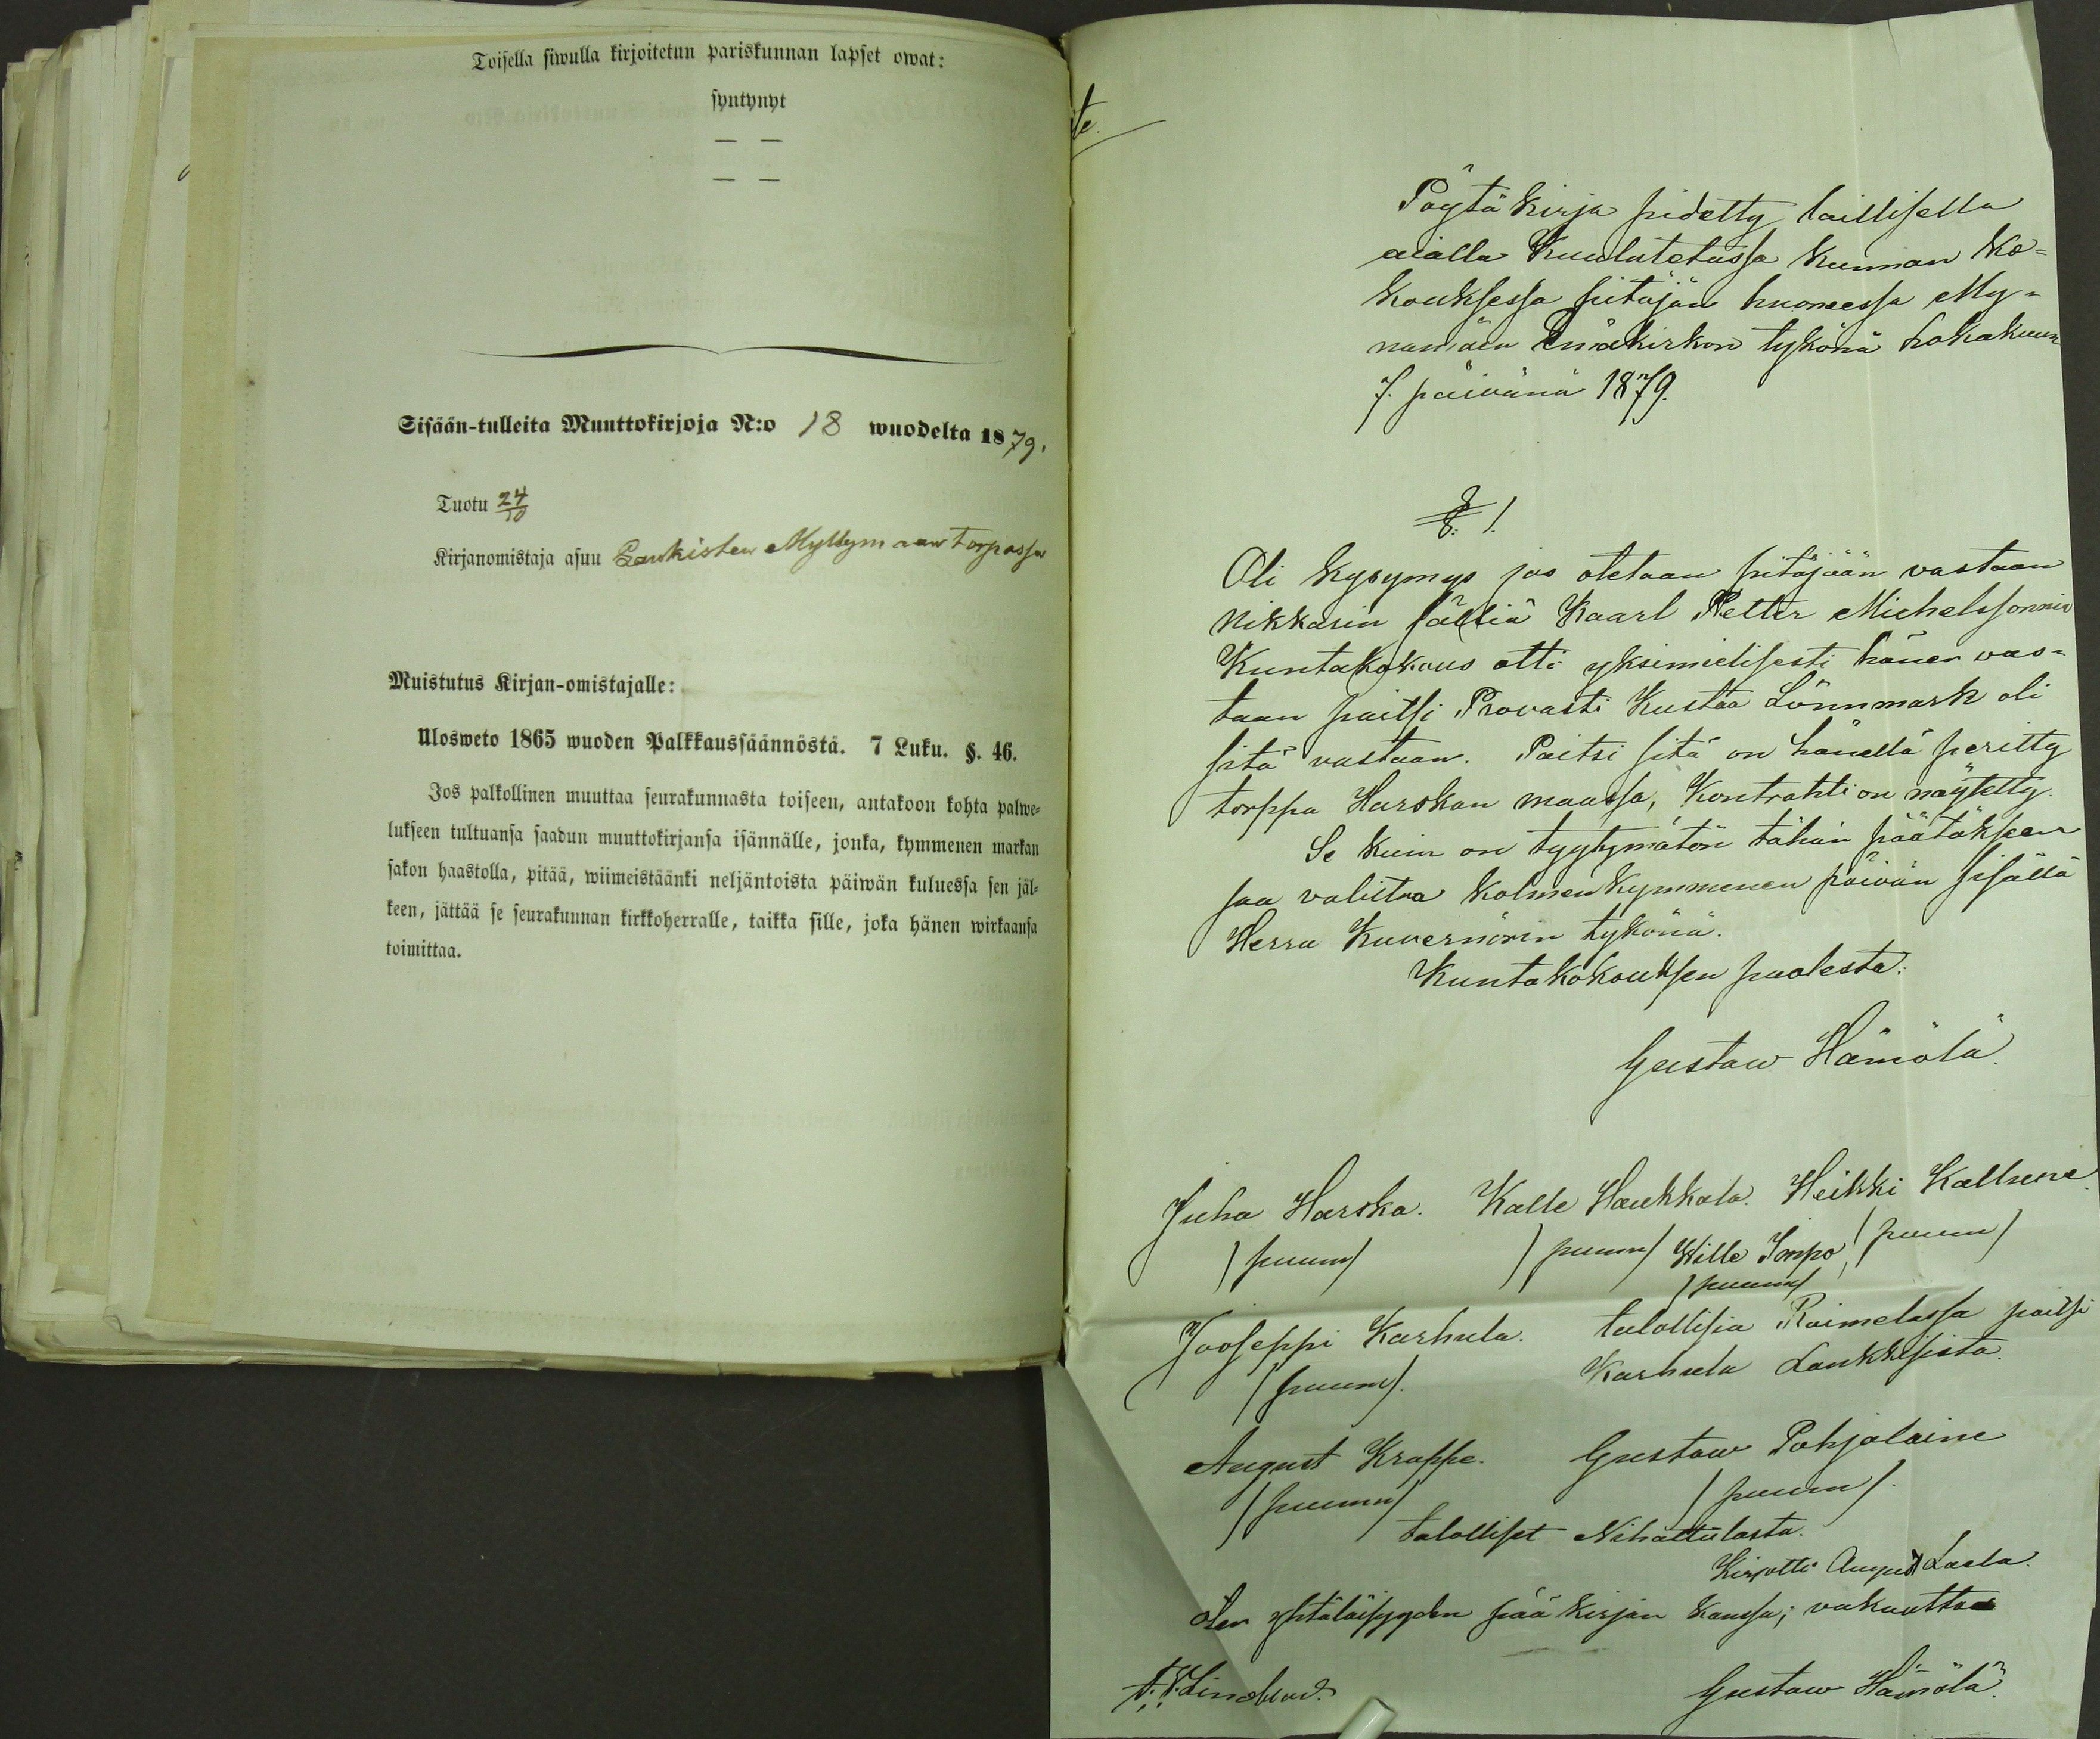 Toisella siwulla kirjoitetun pariskunnan lapset owat:
syntynyt
— —
— —
Sisään-tulleita Muuttokirjoja N:o 18 wuodelta 1879.
Tuotu 24/10
Kirjanomistaja asuu Laukisten Myllymaan torpassa
Muistutus Kirjan-omistajalle:
Ulosweto 1865 wuoden Palkkaussäännöstä. 7 Luku. §. 46.
Jos palkollinen muuttaa seurakunnasta toiseen, antakoon kohta palwe=
lukseen tultuansa saadun muuttokirjansa isännälle, jonka, kymmenen markan
sakon haastolla, pitää, wiimeistäänki neljäntoista päiwän kuluessa sen jäl=
keen, jättää se seurakunnan kirkkoherralle, taikka sille, joka hänen wirkaansa
toimittaa.
Pöytäkirja pidetty laillisella
aialla Kuulutetussa Kunnan Ko=
kouksessa pitäjän huoneessa My=
nämäen Emäkirkon tykönä Lokakuun
7. päivänä 1879.
§. 1.
Oli kysymys jos otetaan pitäjään vastaan
Nikkarin sälliä Kaarl Petter Michelssonnin
Kuntakokous otti yksimielisesti hänen vas=
taan paitsi Provasti Kustaa Lönnmark oli
sitä vastaan. Paitsi sitä on hänellä peritty
torppa Harskan maassa, Kontrahti on näytetty.
Se kuin on tyytymätön tähän päätökseen
saa valittaa Kolmenkymmenen päivän sisällä
Herra Kuvernörin tykönä.
Kuntakokouksen puolesta:
Gustaw Hämölä.
Juha Harska. Kalle Haukkala. Heikki
/puum/ /puum/ Wille Impo, /puum/
/puum/
Jooseppi Karhula. talollisia Raimelassa paitsi
/puum/. Karhula Laukkisista.
August Krappe. Gustaw Pohjolaine
/puum/ /puum/.
talolliset Nihattulasta.
Kirjotti August Laela.
Olen yhtäläisyyden pääkirjan kanssa; vakuuttaa
Lindblad. Gustaw Hämölä.